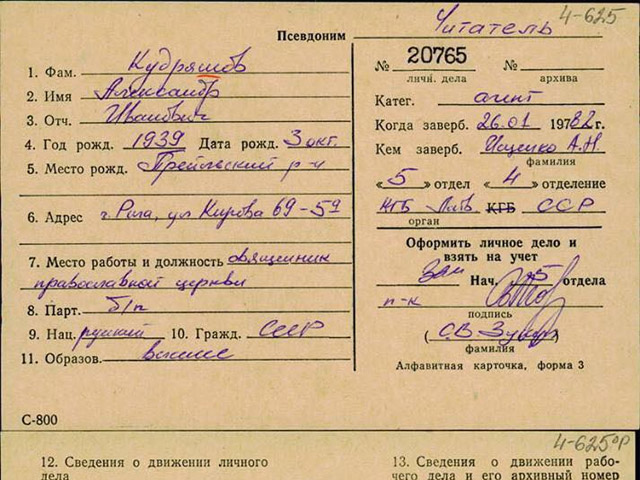 4-625
Псевдоним Читатель
1. Фам. Кудряшов
2. Имя Александр
3. Отч. Иванович
4. Год рожд. 1939 Дата рожд. 3 окт.
5. Место рожд. Прейльский р-н
6. Адрес г. Рига, ул Кирова 69-59
7. Место работы и должность священник
православной церкви
8. Парт. б/п
9. Нац. русский 10. Гражд. СССР
11. Образов. высшее
С-800
№ 20765 №
личн. дела архива
Катег. агент
Когда заверб. 26.01 1982 г.
Кем заверб. Ищенко А.Н.
фамилия
«5» отдел 4 отделение
КГБ Латв КГБ ССР
орган
Оформить личное дело и
взять на учет
Зам Нач. 5 отдела
п-к
подпись
фамилия
Алфавитная карточка, форма 3
4-625 об
12. Сведения о движении личного
дела
13. Сведения о движении рабо-
чего дела и его архивный номер